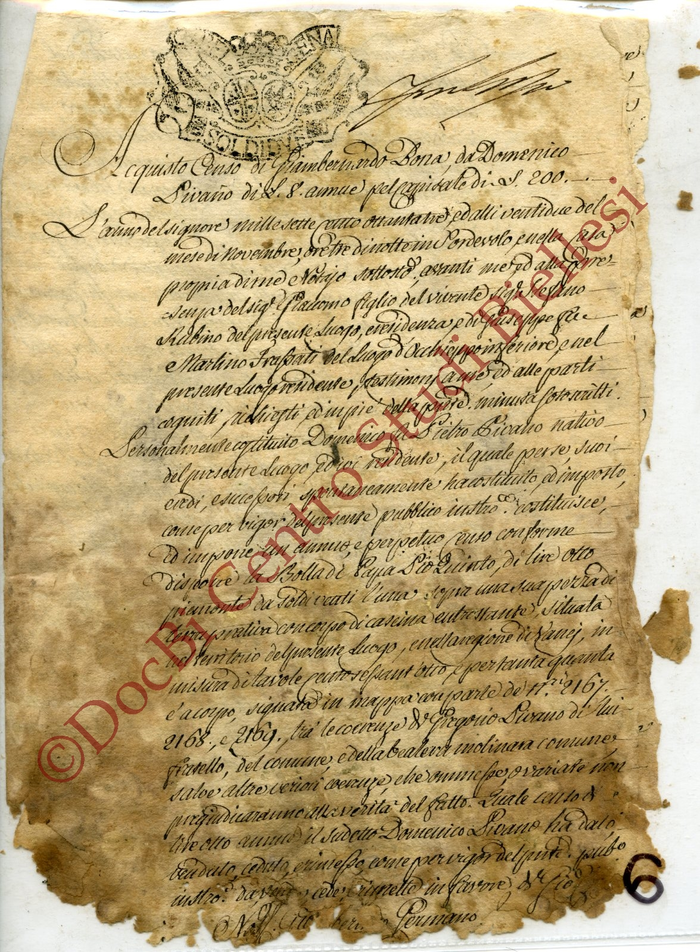 SOLDI
Acquisto Censo di Giambernardo Bona, da Domenico
Pivano di L. 8. annue pel Capitale di L. 200.
L'anno del signore mille sette cento ottantatre ed alli ventidue del
mese di novembre, ore tre di notte in Pordevolo, e nella casa
propria di me Notajo sottos.to, avanti me ed alla pre=
senza del sig.r Giacomo figlio del vivente sig.r Stefano
Rubino del presente Luogo, e residenza, e di Giuseppe fu
Martino Trassati del Luogo d'Occhieppo inferiore, e nel
presente Luogo residente, testimonj a me ed alle parti
cogniti, richiesti, ed in piè della minuta sottoscritti.
Personalmente costituito Domenico fu Pietro Pivano nativo
del presente Luogo, ed ivi residente, il quale per se, suoi
eredi, e successori spontaneamente ha costituito, ed imposto,
come per vigor del presente pubblico instro. costituisce,
ed impone un annuo, e perpetuo censo conforme
dispone la Bolla di Papa Pio Quinto, di lire otto
piemonte da soldi venti l'una sopra una sua pezza di
terra prativa con corpo di cascina entrostante, situata
nel territorio del presente Luogo, e nella regione di in
misura di tavole cento sessant'otto, e per tanta quanta
è a corpo, siguata in mappa con parte de n.ri 2167.
2168. e 2169., tra le coerenze di Gregorio Pivano di lui
fratello, del comune, e della bealera molinara comune,
salve altre veriori coerenze, che ommesse, o variate non
pregiudicaranno alla verità del fatto. Quale censo di
lire otto annue il sudetto Domenico Pivano ha dato,
venduto, ceduto, e rimesso come per vigor del pnte. pubo.
instro. da vende, cede, e rimette in favore di Gio
Germano.
©DocBi Centro Studi Biellesi
6